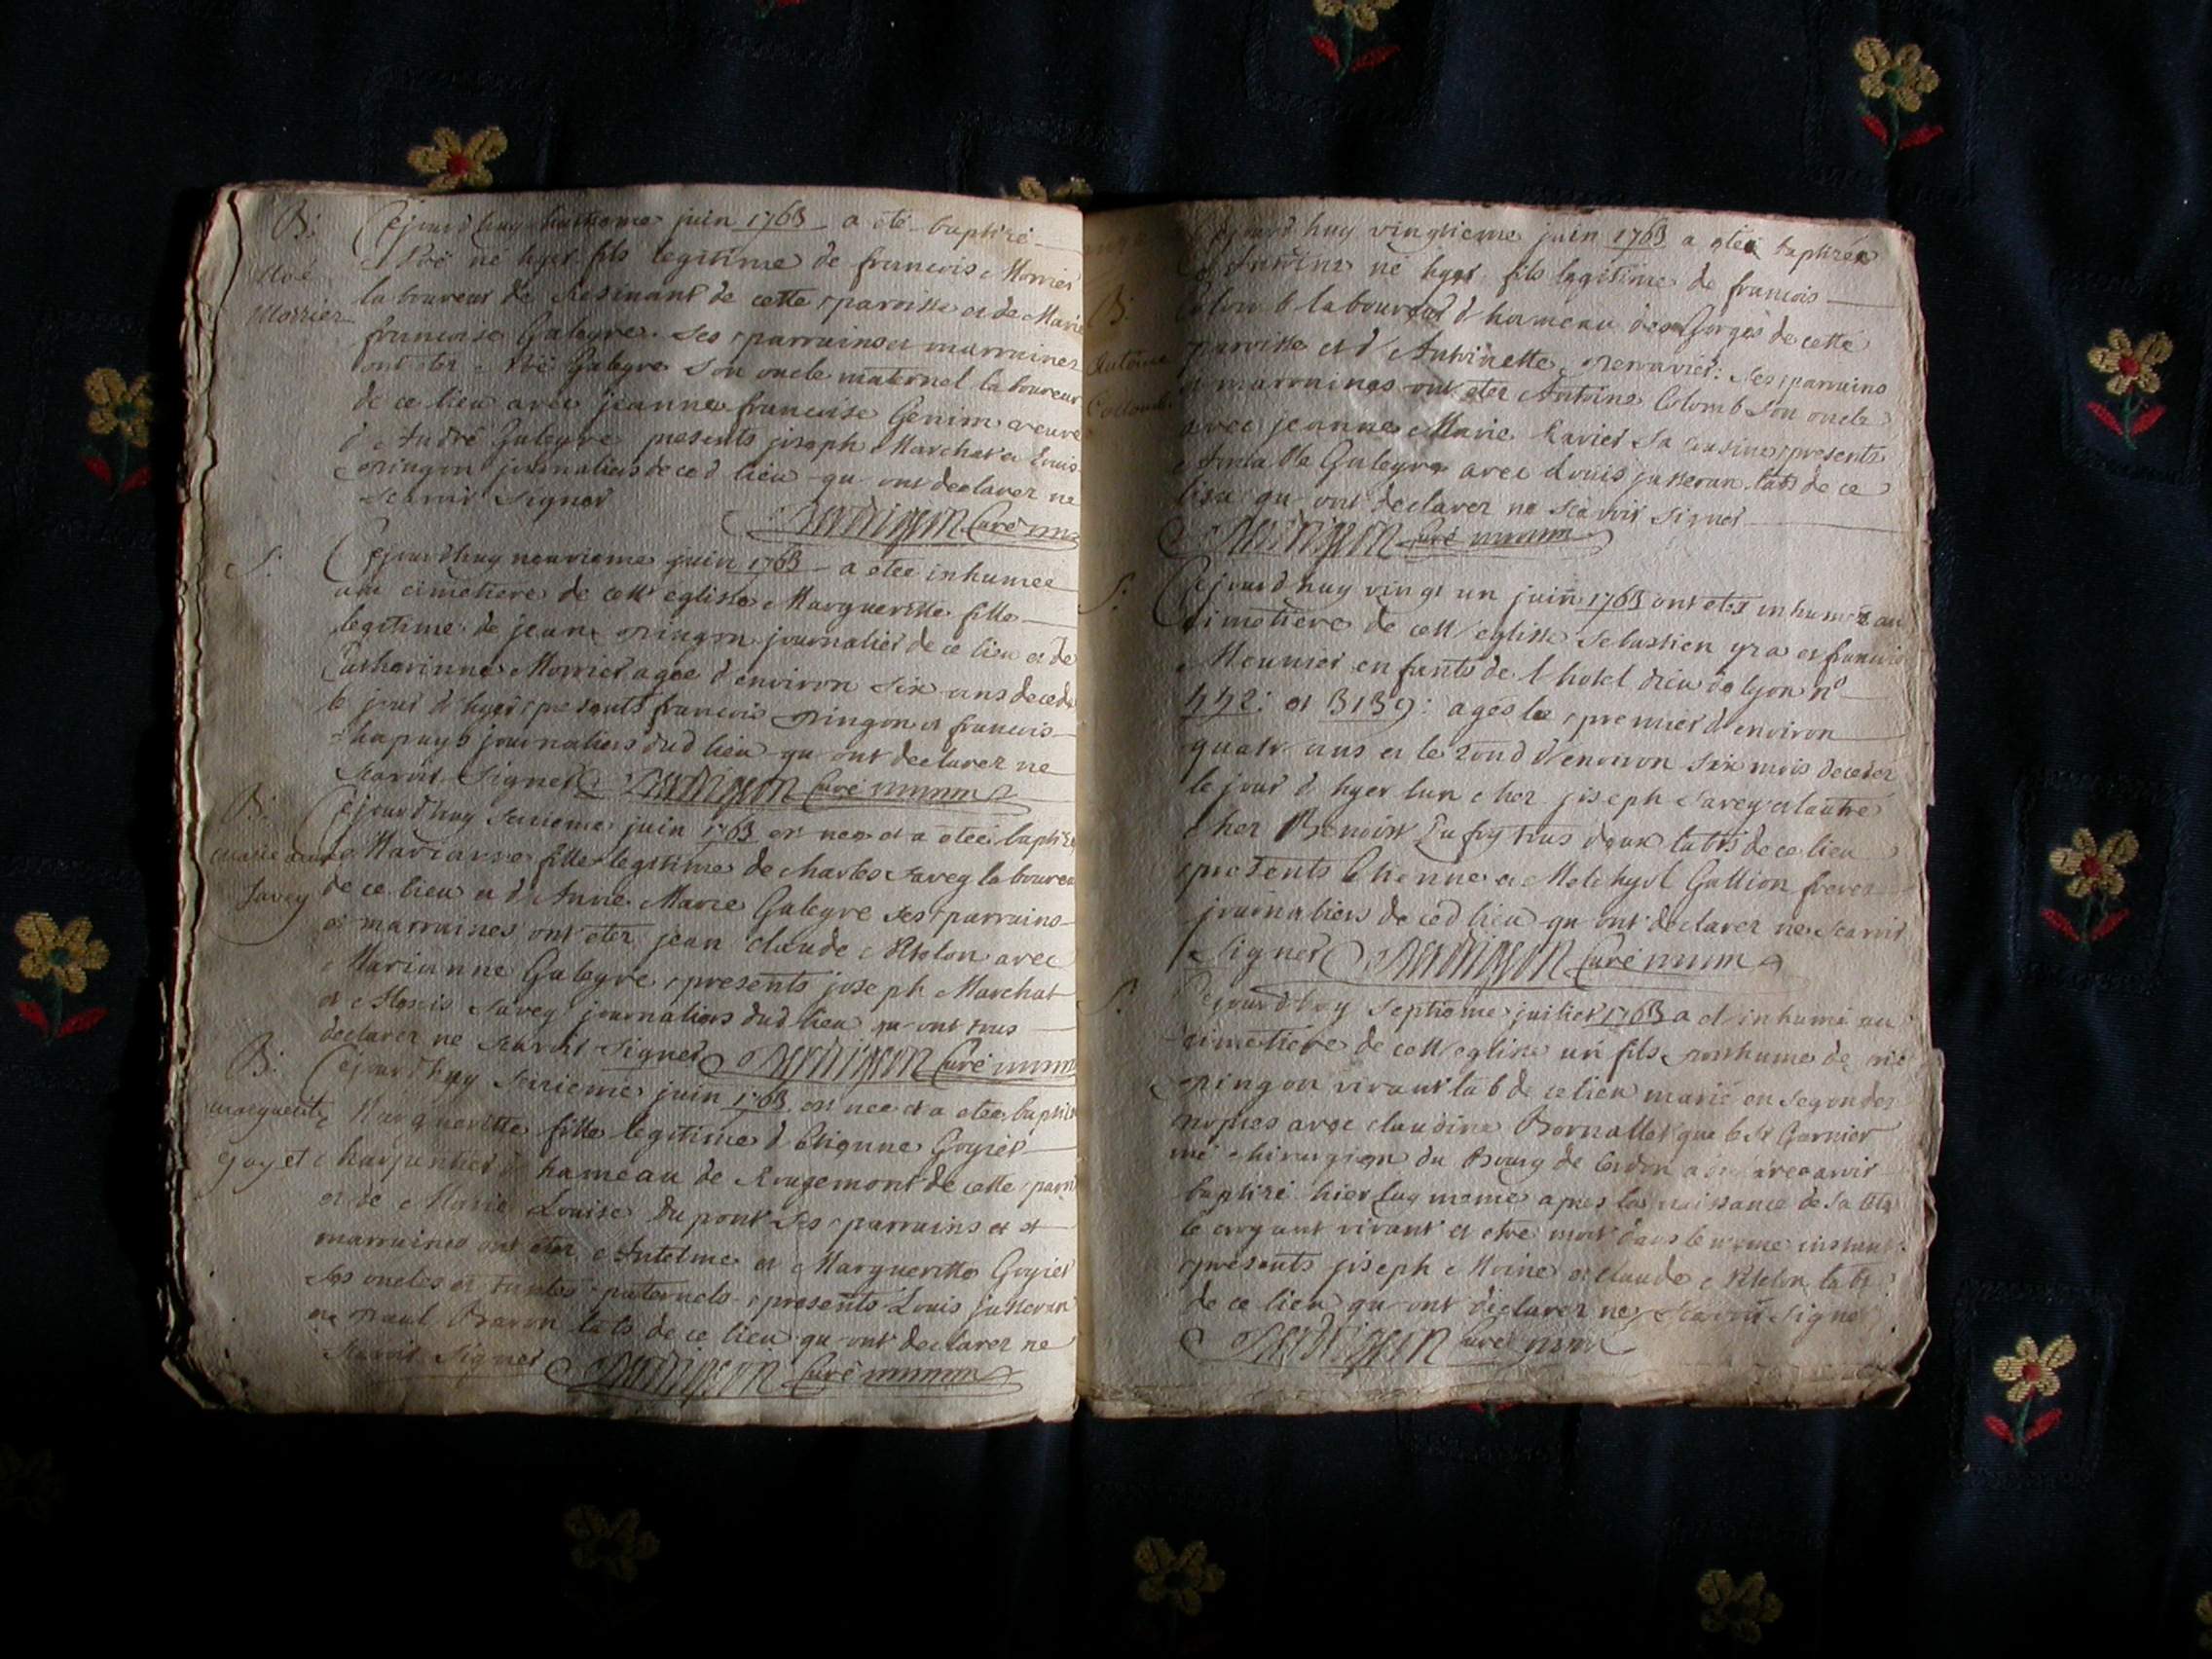 B.
Noé
Morrier
Cejourdhuy huitieme juin 1763 a eté baptizé
Noë né hyer fils legitime de francois Morrier
laboureur de de cette parroisse et de Marie
francoise Galegre. Ses parrains et marraines
ont eter Noë Galegre Son oncle maternel laboureur
de ce lieu avec jeanne francoise Genim veuve
d'André Galegre presents joseph Marchat et Louis
pingon journaliers de ced lieu qu ont declarer ne
Scavoir Signer
Curé
S.
Cejourdhuy neuvieme juin 1763 a etee inhumee
au cimetiere de cett eglise Margueritte fille
legitime de jean pingon journalier de ce lieu et de
Catherinne Morrier agée d'environ six ans decedé
le jour d'hyer presents francois pingon et francois
Chapuys journaliers dud lieu qu ont declarer ne
Scavoir Signer Curé
B.
Marie anne
Savey
Cejourdhuy Sezieme juin 1763 est nee et a etée baptizé
Marianne fille legitime de charles Savey laboureur
de ce lieu et d'Anne Marie Galegre Ses parrains
et marraines ont eter jean claude avec
Marianne Galegre, presents joseph Marchat
et Alexis Savey journaliers dud lieu qu ont tous
declarer ne Scavoir Signer Curé
B.
marguerite
goyet
Cejourdhuy Sezieme juin 1763 est nee et a etee baptizé
Margueritte fille legitime d'Etienne Goyet
charpentier d hameau de Rougemont de cette parr
et de Marie Louise Dupont Ses parrains et et
marraines ont eter Antelme et Margueritte Goyet
Ses oncles et tantes paternels presents Louis jusseran
et paul Baron labts de ce lieu qu ont declarer ne
Scavoir Signer Curé
B.
Antoine
Collomb
Cejourdhuy vingtieme juin 1763 a etée baptizée
Antoine né hyer fils legitime de francois
Colomb laboureur d hameau des Gorges de cette
parroisse et d'Antoinette Ses parrains
et marraines ont eter Antoine Colomb Son oncle
avec jeanne Marie Ravier Sa cousine, presents
Galegre avec Louis jusseran labts de ce
lieu qu ont declarer ne Scavoir Signer
Curé
S.
Cejourdhuy vingt un juin 1763 ont eter inhumez au
cimetiere de cett eglise Sebastien yra et francois
Meunier enfants de l'hotel dieu de lyon n°
442: et 3139: agés le premier d'environ
quatr ans et le 2ond d'environ six mois decedez
le jour d'hyer lun chez joseph Savey et lautre
chez Benoist Dufoy tous deux labts de ce lieu
presents Etienne et Melchyol Gallion freres
journaliers de ced lieu qu ont declarer ne Scavoir
Signer Curé
S.
Cejourdhuy Septieme juillet 1763 a et inhumé au
cimetiere de cett eglise un fils posthume de
pingon vivant lab de ce lieu marié en segondes
nopces avec claudine Bornallet que le Sr Garnier
me chirurgien du Bourg de Cerdon a avoir
baptizé hier luy meme apres la naissance de Sa tete
le croyant vivant et etre mort dans le meme instant
presents joseph Moine et claude labts
de ce lieu qu ont declarer ne Scavoir Signer
Curé